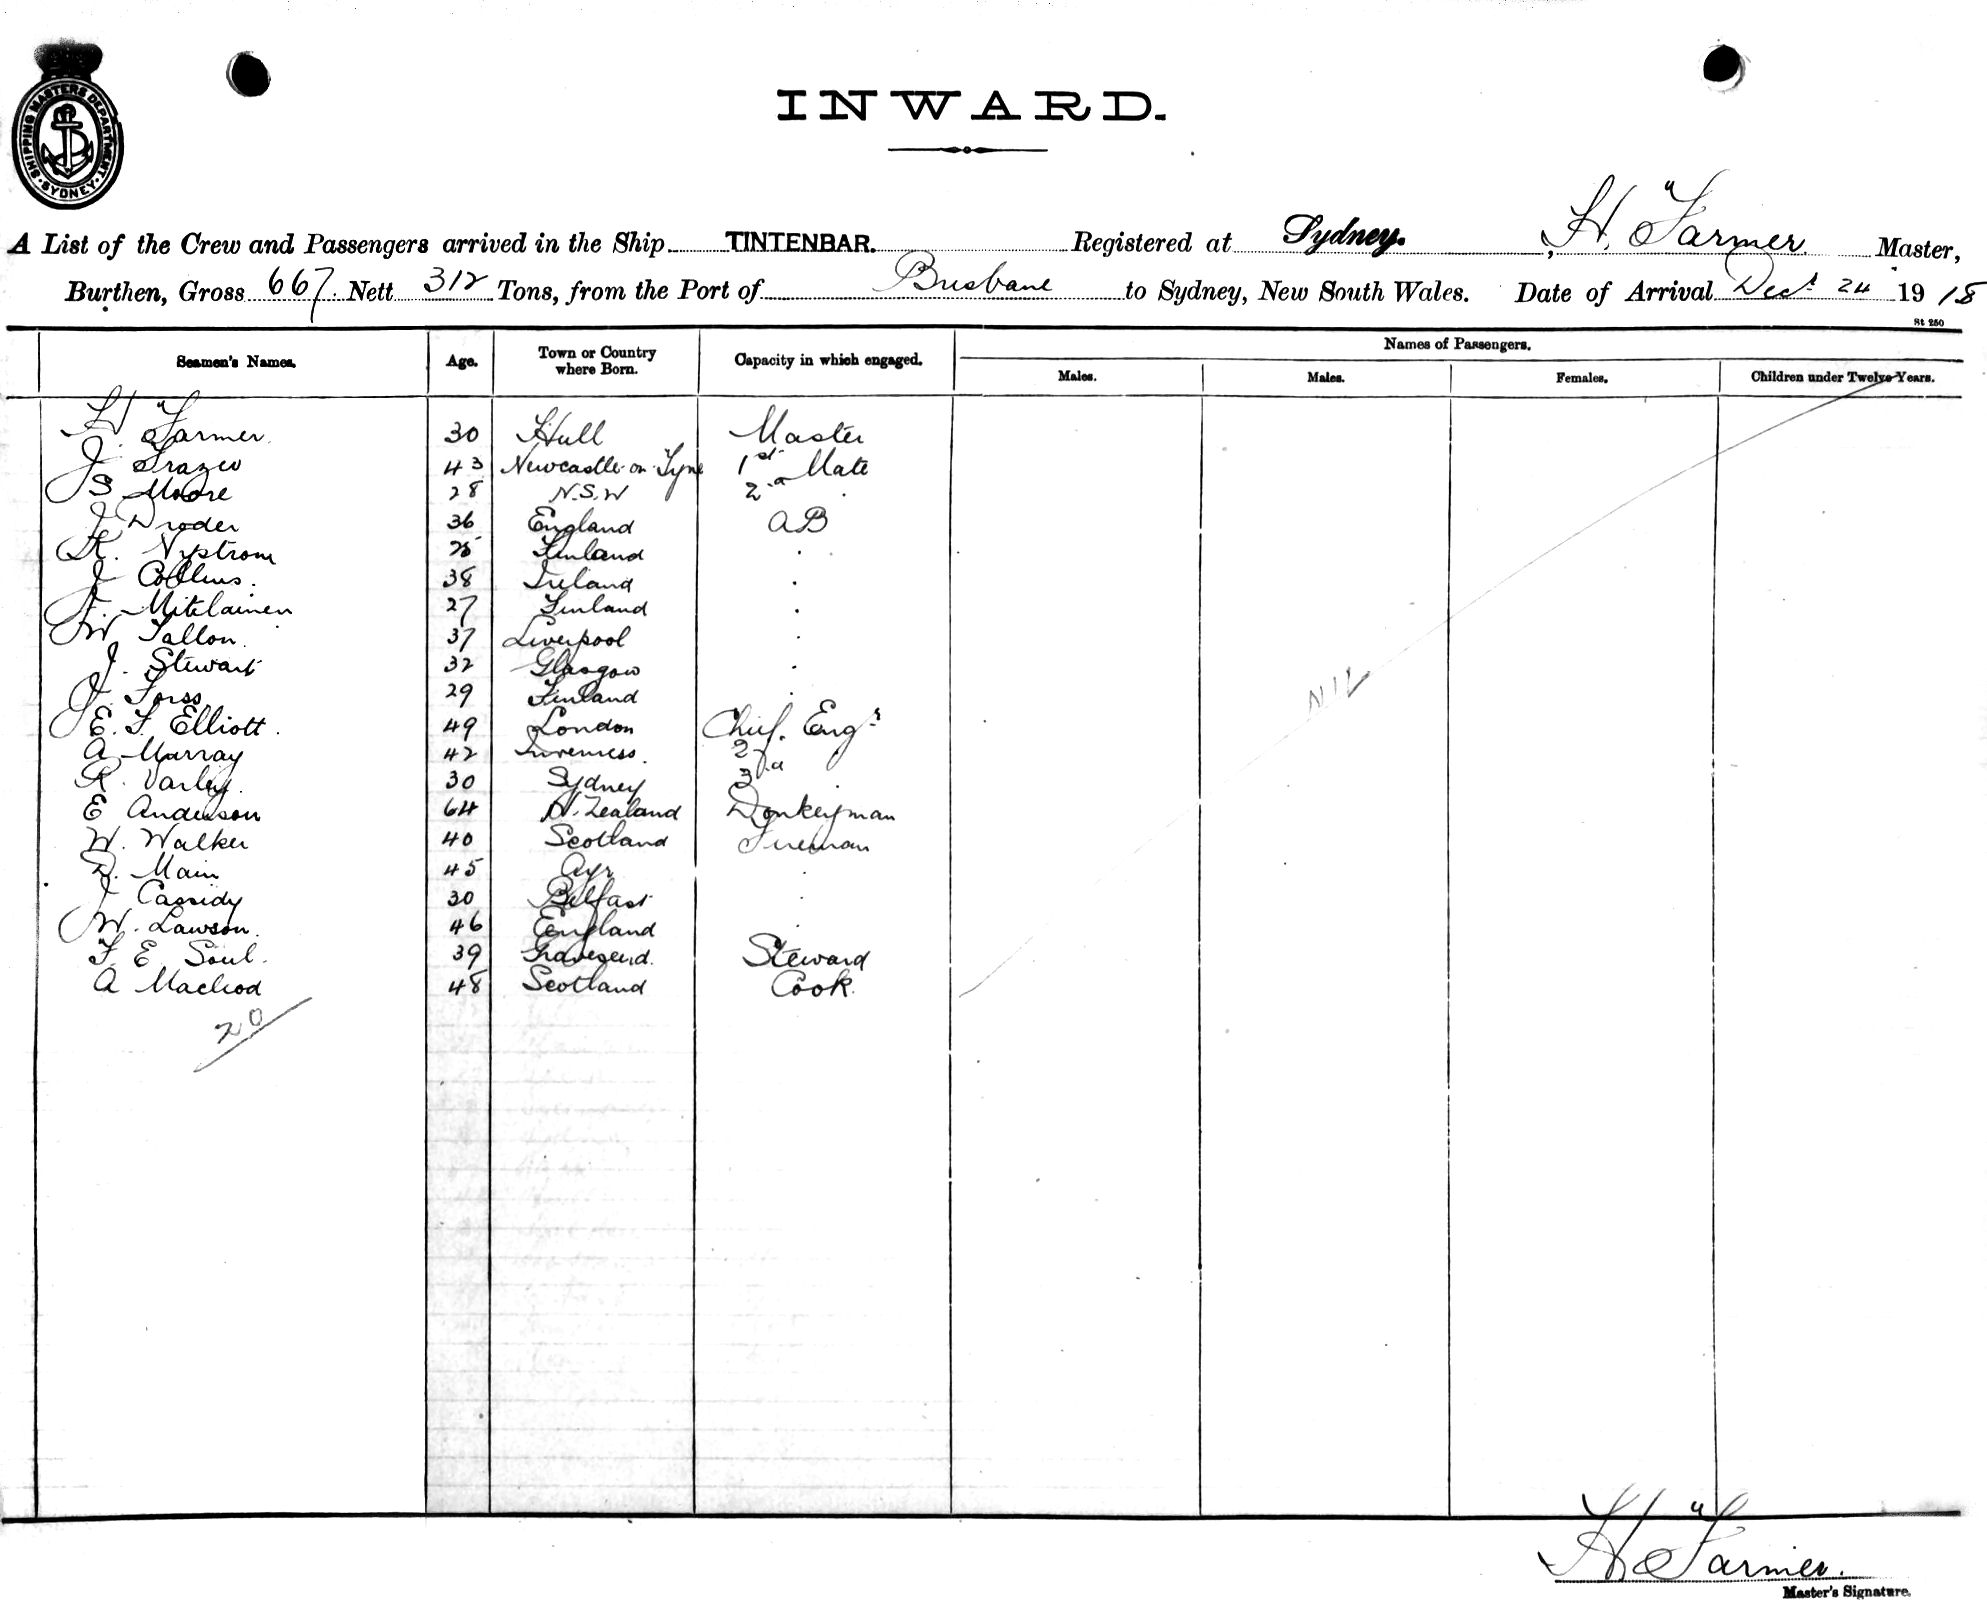 SHIPPING MASTERS DEPARTMENT · SYDNEY ·
INWARD.
A List of the Crew and Passengers arrived in the Ship TINTENBAR. Registered at Sydney. H. Farmer. Master,
Burthen, Gross 667. Nett 312 Tons, from the Port of Brisbane to Sydney, New South Wales. Date of Arrival Decr 24 1918
St 250
Seamen's Names. Age. Town or Country where Born. Capacity in which engaged. Names of Passengers.
Males. Males. Females. Children under Twelve Years.
H. Farmer. 30 Hull Master
J. Frazer 43 Newcastle-on-Tyne 1st Mate
S Moore 28 N.S.W 2nd
J Droder 36 England AB
K. Nystrom Finland
J Collins. 38 Ireland
Mitilainen 27 Finland
W Tallon. 37 Liverpool
J. Stewart 32 Glasgow
J. Forss 29 Finland
E. F. Elliott. 49 London Chief. Engr
A Murray 42 Inverness. 2nd
R. Varley. 30 Sydney 3rd
E Anderson 64 N. Zealand Donkeyman
W. Walker 40 Scotland Fireman
D. Main 45 Ayr
J Cassidy 30 Belfast
W. Lawson. 46 England
F. E Soul. 39 Gravesend. Steward
A Macleod 48 Scotland Cook.
20
NIL
H Farmer.
Master's Signature.